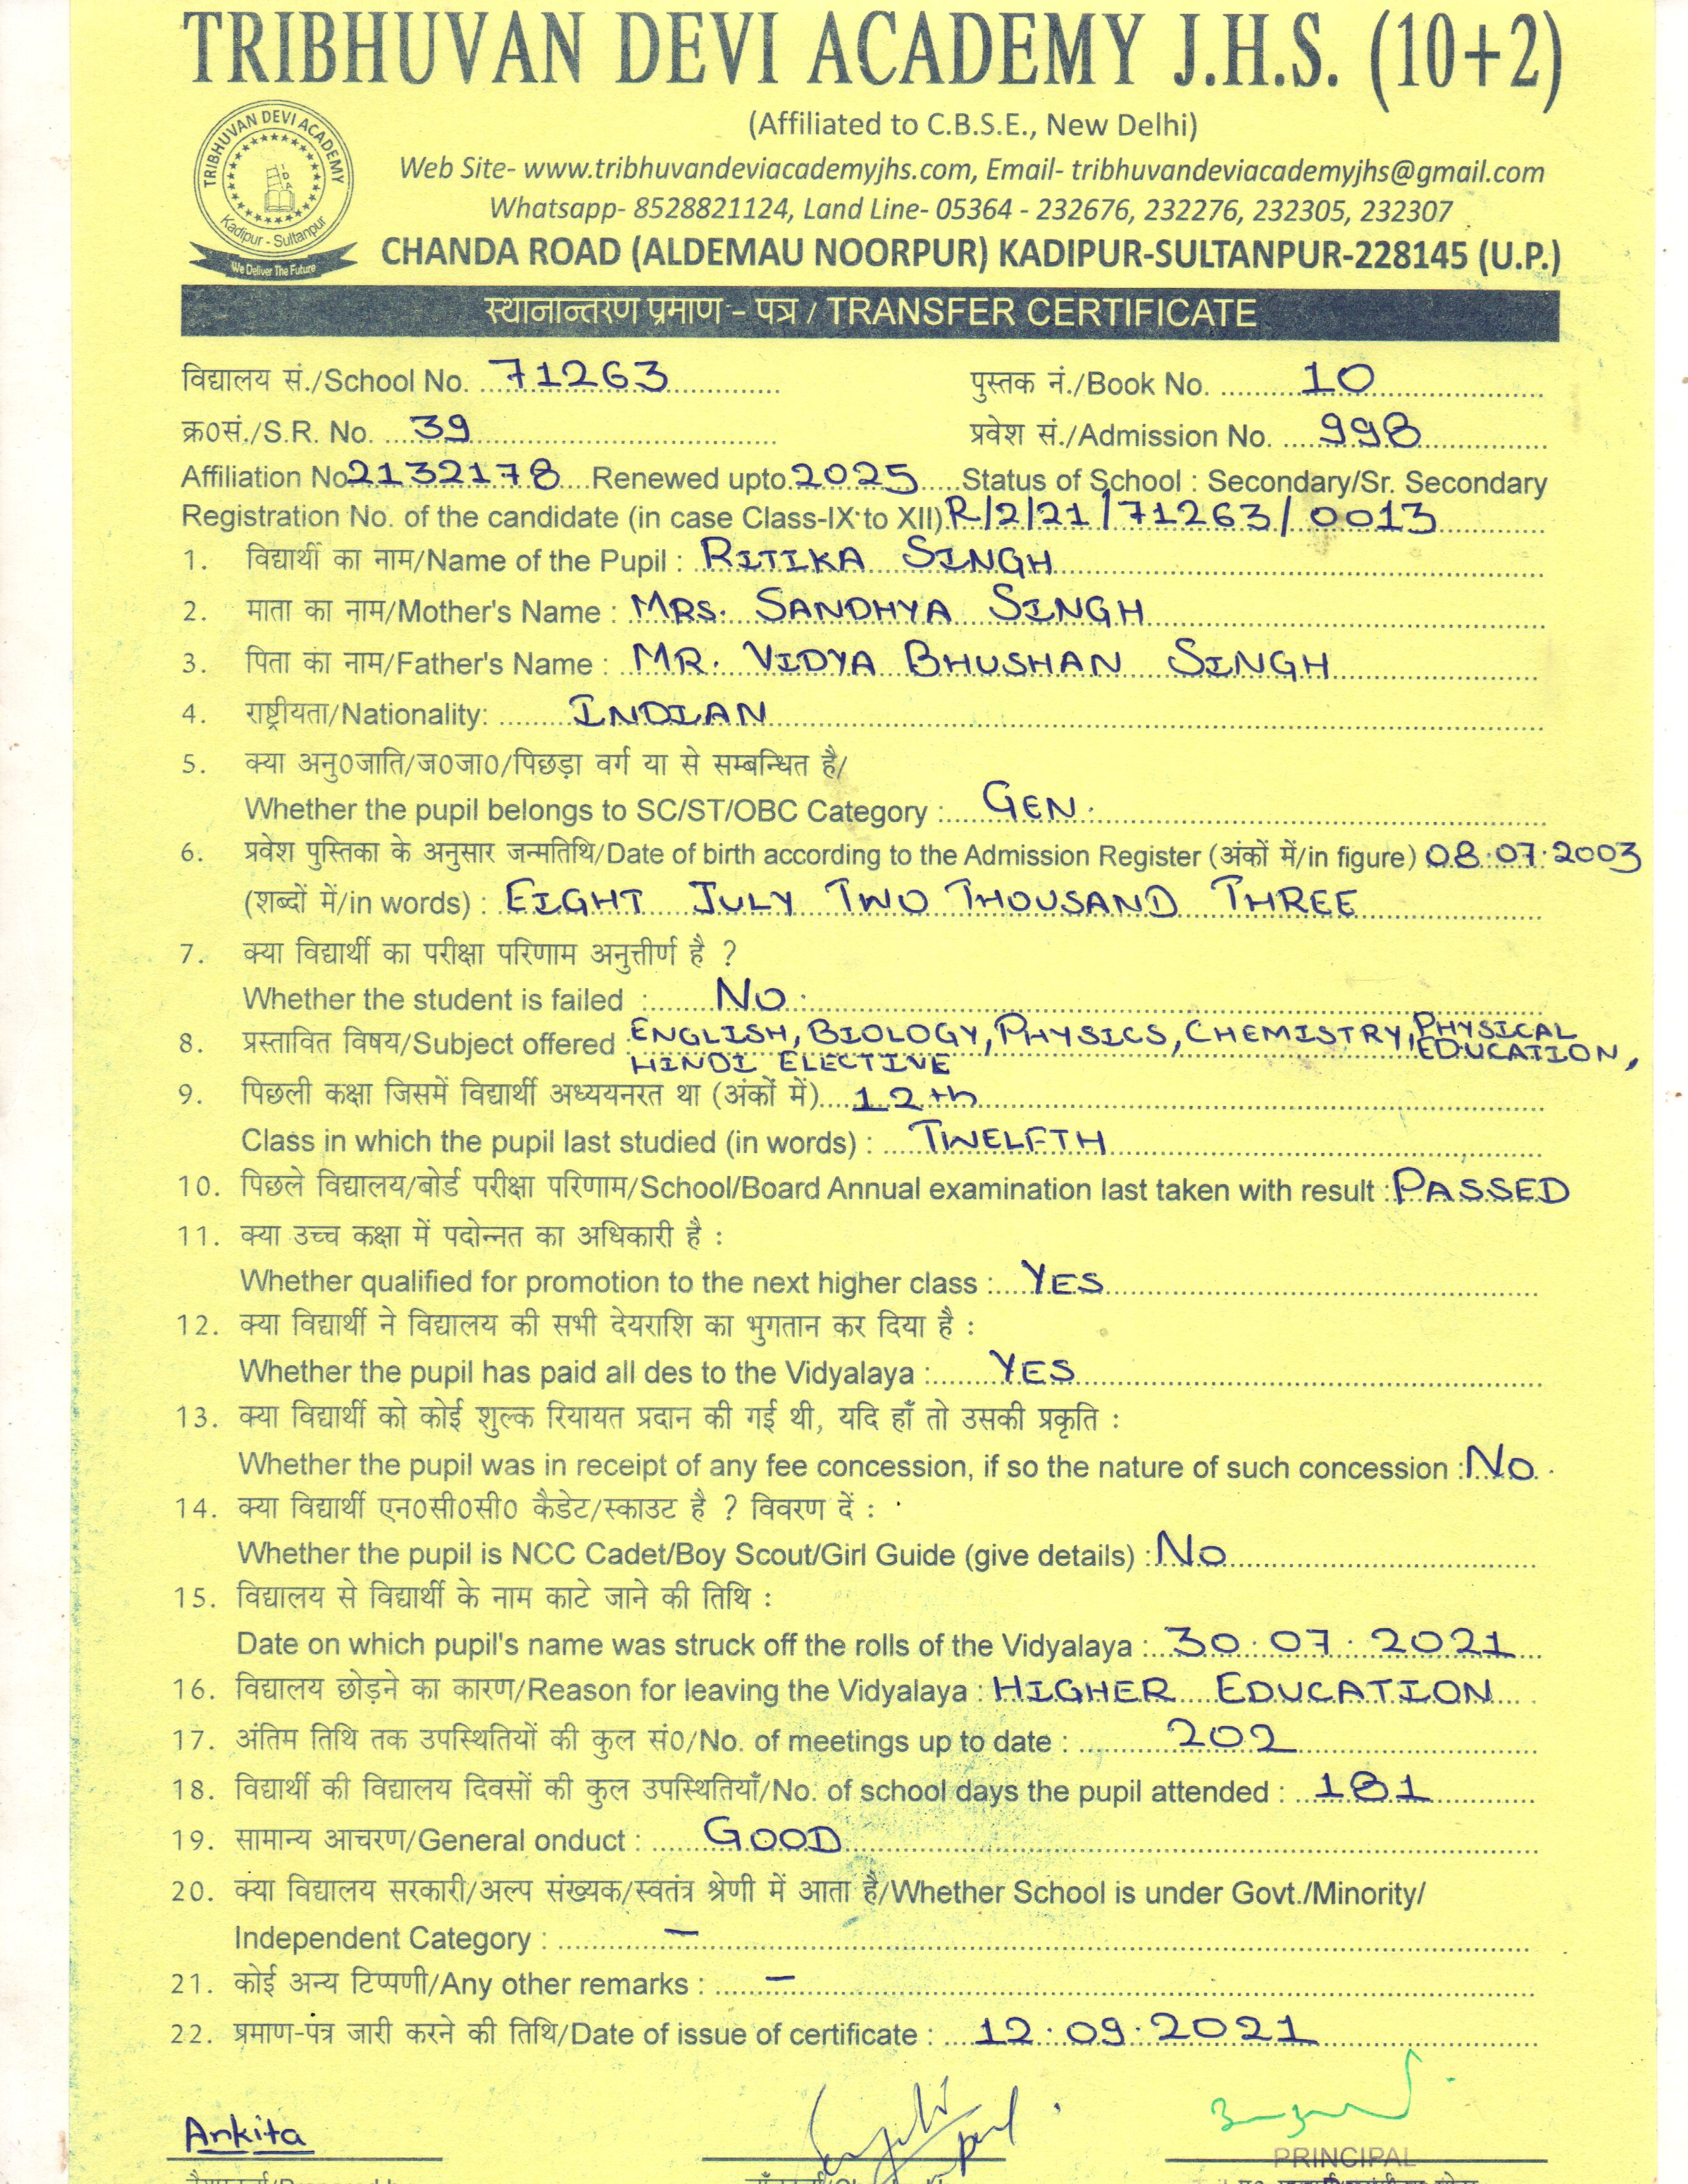 TRIBHUVAN DEVI ACADEMY J.H.S. (10+2)
(Affiliated to C.B.S.E., New Delhi)
TRIBHUVAN DEVI ACADEMY
Kadipur - Sultanpur
We Deliver The Future
Web Site- www.tribhuvandeviacademyjhs.com, Email- tribhuvandeviacademyjhs@gmail.com
Whatsapp- 8528821124, Land Line- 05364 - 232676, 232276, 232305, 232307
CHANDA ROAD (ALDEMAU NOORPUR) KADIPUR-SULTANPUR-228145 (U.P.)
स्थानान्तरण प्रमाण - पत्र / TRANSFER CERTIFICATE
विद्यालय सं./School No. 71263 पुस्तक नं./Book No. 10
क्र0सं./S.R. No. 39 प्रवेश सं./Admission No. 998
Affiliation No 2132178 Renewed upto 2025 Status of School : Secondary/Sr. Secondary
Registration No. of the candidate (in case Class-IX to XII) R/2/21/71263/0013
1. विद्यार्थी का नाम/Name of the Pupil : RITIKA SINGH
2. माता का नाम/Mother's Name : MRS. SANDHYA SINGH
3. पिता का नाम/Father's Name : MR. VIDYA BHUSHAN SINGH
4. राष्ट्रीयता/Nationality: INDIAN
5. क्या अनु0जाति/ज0जा0/पिछड़ा वर्ग या से सम्बन्धित है/
Whether the pupil belongs to SC/ST/OBC Category : GEN.
6. प्रवेश पुस्तिका के अनुसार जन्मतिथि/Date of birth according to the Admission Register (अंकों में/in figure) 08.07.2003
(शब्दों में/in words) : EIGHT JULY TWO THOUSAND THREE
7. क्या विद्यार्थी का परीक्षा परिणाम अनुत्तीर्ण है ?
Whether the student is failed : NO.
8. प्रस्तावित विषय/Subject offered : ENGLISH, BIOLOGY, PHYSICS, CHEMISTRY, PHYSICAL EDUCATION,
HINDI ELECTIVE
9. पिछली कक्षा जिसमें विद्यार्थी अध्ययनरत था (अंकों में) 12th
Class in which the pupil last studied (in words) : TWELFTH
10. पिछले विद्यालय/बोर्ड परीक्षा परिणाम/School/Board Annual examination last taken with result : PASSED
11. क्या उच्च कक्षा में पदोन्नत का अधिकारी है :
Whether qualified for promotion to the next higher class : YES
12. क्या विद्यार्थी ने विद्यालय की सभी देयराशि का भुगतान कर दिया है :
Whether the pupil has paid all des to the Vidyalaya : YES
13. क्या विद्यार्थी को कोई शुल्क रियायत प्रदान की गई थी, यदि हाँ तो उसकी प्रकृति :
Whether the pupil was in receipt of any fee concession, if so the nature of such concession : NO.
14. क्या विद्यार्थी एन0सी0सी0 कैडेट/स्काउट है ? विवरण दें :
Whether the pupil is NCC Cadet/Boy Scout/Girl Guide (give details) : NO
15. विद्यालय से विद्यार्थी के नाम काटे जाने की तिथि :
Date on which pupil's name was struck off the rolls of the Vidyalaya : 30.07.2021
16. विद्यालय छोड़ने का कारण/Reason for leaving the Vidyalaya : HIGHER EDUCATION
17. अंतिम तिथि तक उपस्थितियों की कुल सं0/No. of meetings up to date : 202
18. विद्यार्थी की विद्यालय दिवसों की कुल उपस्थितियाँ/No. of school days the pupil attended : 181
19. सामान्य आचरण/General onduct : GOOD
20. क्या विद्यालय सरकारी/अल्प संख्यक/स्वतंत्र श्रेणी में आता है/Whether School is under Govt./Minority/
Independent Category : —
21. कोई अन्य टिप्पणी/Any other remarks : —
22. प्रमाण-पत्र जारी करने की तिथि/Date of issue of certificate : 12.09.2021
Ankita
PRINCIPAL